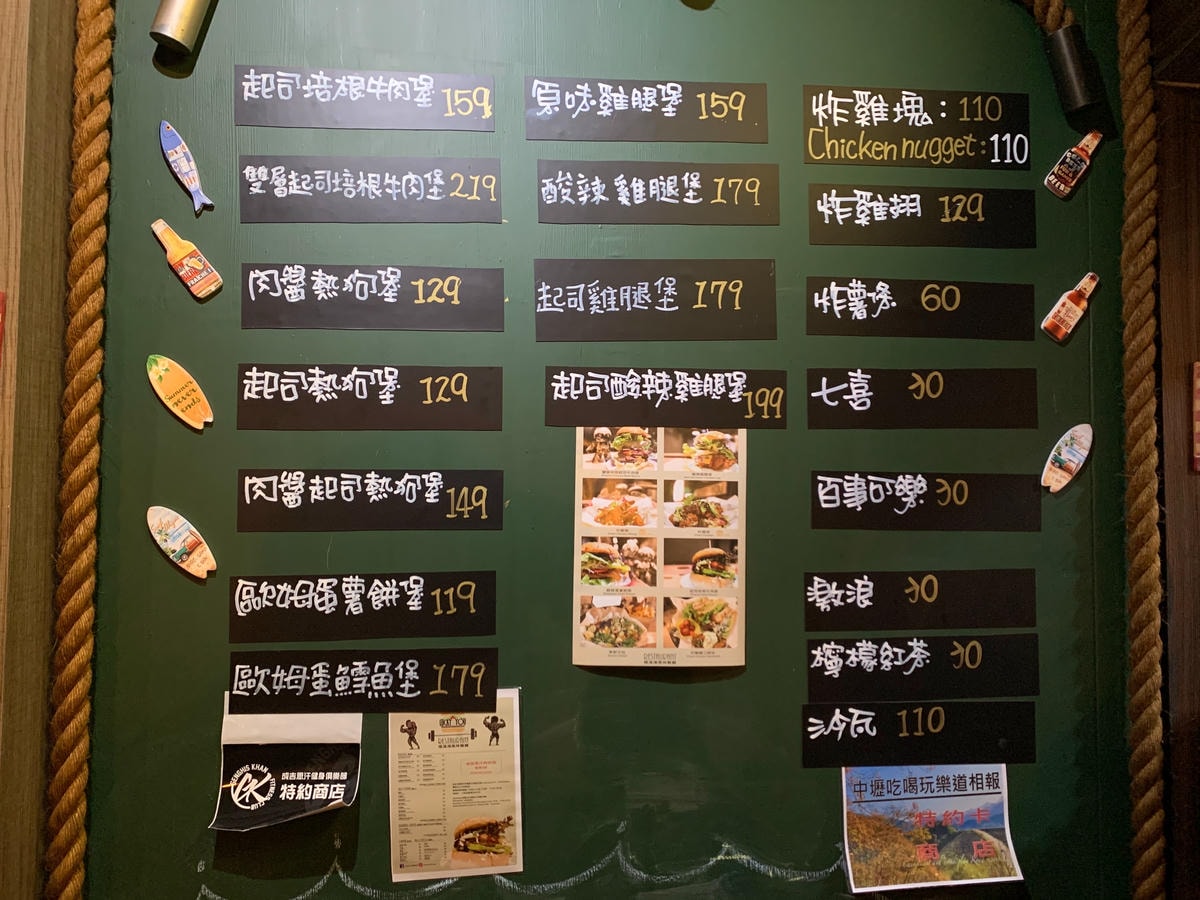 起司培根牛肉堡 159
雙層起司培根牛肉堡 219
肉醬熱狗堡 129
起司熱狗堡 129
肉醬起司熱狗堡 149
歐姆蛋薯餅堡 119
歐姆蛋鱈魚堡 179
原味雞腿堡 159
酸辣雞腿堡 179
起司雞腿堡 179
起司酸辣雞腿堡 199
炸雞塊：110
Chicken nugget：110
炸雞翅 129
炸薯條 60
七喜 30
百事可樂 30
激浪 30
檸檬紅茶 30
沙瓦 110
Summer
never
ends
GENGHIS KHAN
GK
FITNESS CLUB
成吉思汗健身俱樂部
特約商店
RESTAURANT
RESTAURANT
中壢吃喝玩樂道相報
特約卡
商店